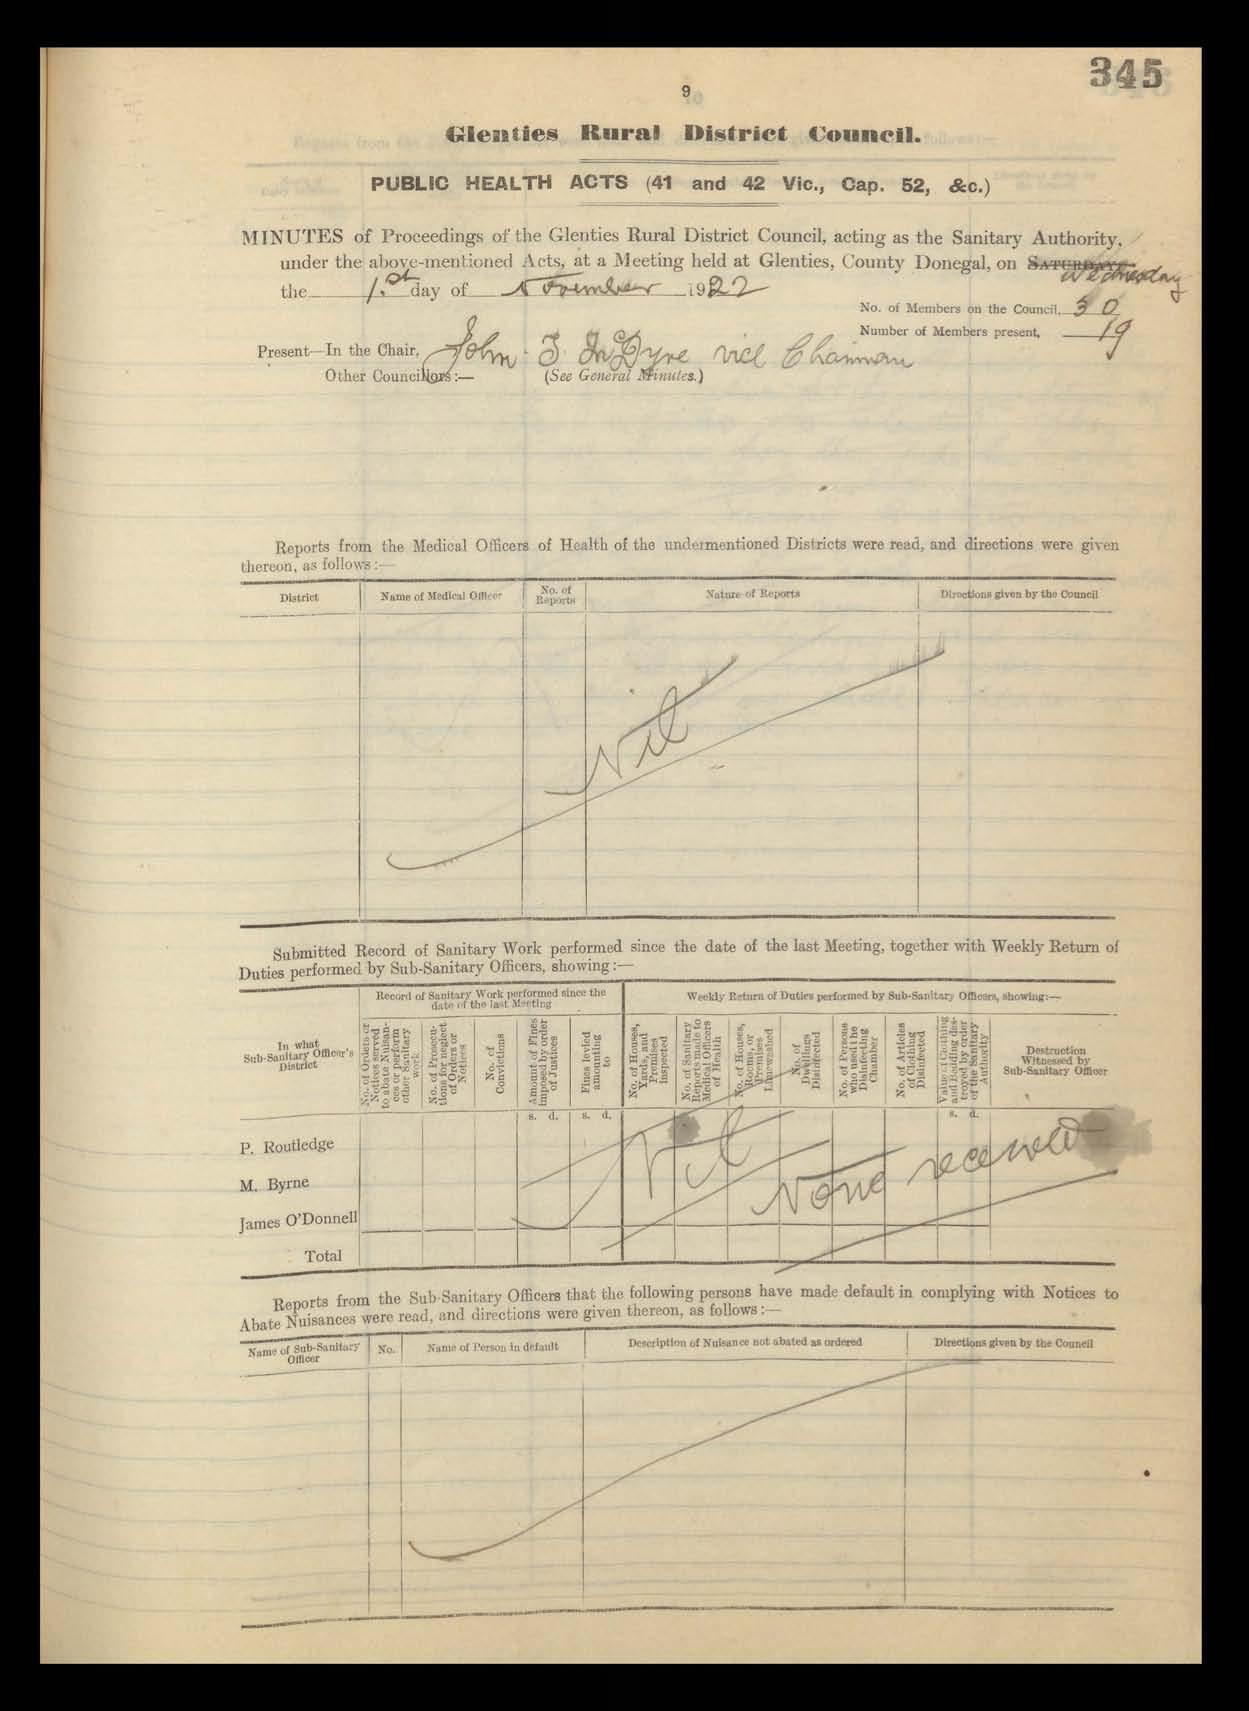 345
9
Glenties Rural District Council.
PUBLIC HEALTH ACTS (41 and 42 Vic., Cap. 52, &c.)
MINUTES of Proceedings of the Glenties Rural District Council, acting as the Sanitary Authority,
under the above-mentioned Acts, at a Meeting held at Glenties, County Donegal, on SATURDAY, Wednesday
the 1.st day of November 1922
No. of Members on the Council, 30
Number of Members present, 19
Present—In the Chair, John. vice Chairman
Other Councillors:— (See General Minutes.)
Reports from the Medical Officers of Health of the undermentioned Districts were read, and directions were given
thereon, as follows:—
District Name of Medical Officer No. of Reports Nature of Reports Directions given by the Council
Nil
Submitted Record of Sanitary Work performed since the date of the last Meeting, together with Weekly Return of
Duties performed by Sub-Sanitary Officers, showing:—
In what Sub-Sanitary Officer's District
Record of Sanitary Work performed since the date of the last Meeting
Weekly Return of Duties performed by Sub-Sanitary Officers, showing:—
No. of Orders or Notices served to abate Nuisances or perform other Sanitary work
No. of Prosecutions for neglect of Orders or Notices
No. of Convictions
Amount of Fines imposed by order of Justices
Fines levied amounting to
No. of Houses, Yards, and Premises inspected
No. of Sanitary Reports made to Medical Officers of Health
No. of Houses, Rooms, or Premises Limewashed
No. of Dwellings Disinfected
No. of Persons who used the Disinfecting Chamber
No. of Articles of Clothing Disinfected
Value of Clothing and Bedding destroyed by order of the Sanitary Authority
Destruction Witnessed by Sub-Sanitary Officer
s. d. s. d. s. d.
P. Routledge
M. Byrne
James O'Donnell
Total
Nil
None received
Reports from the Sub-Sanitary Officers that the following persons have made default in complying with Notices to
Abate Nuisances were read, and directions were given thereon, as follows:—
Name of Sub-Sanitary Officer No. Name of Person in default Description of Nuisance not abated as ordered Directions given by the Council